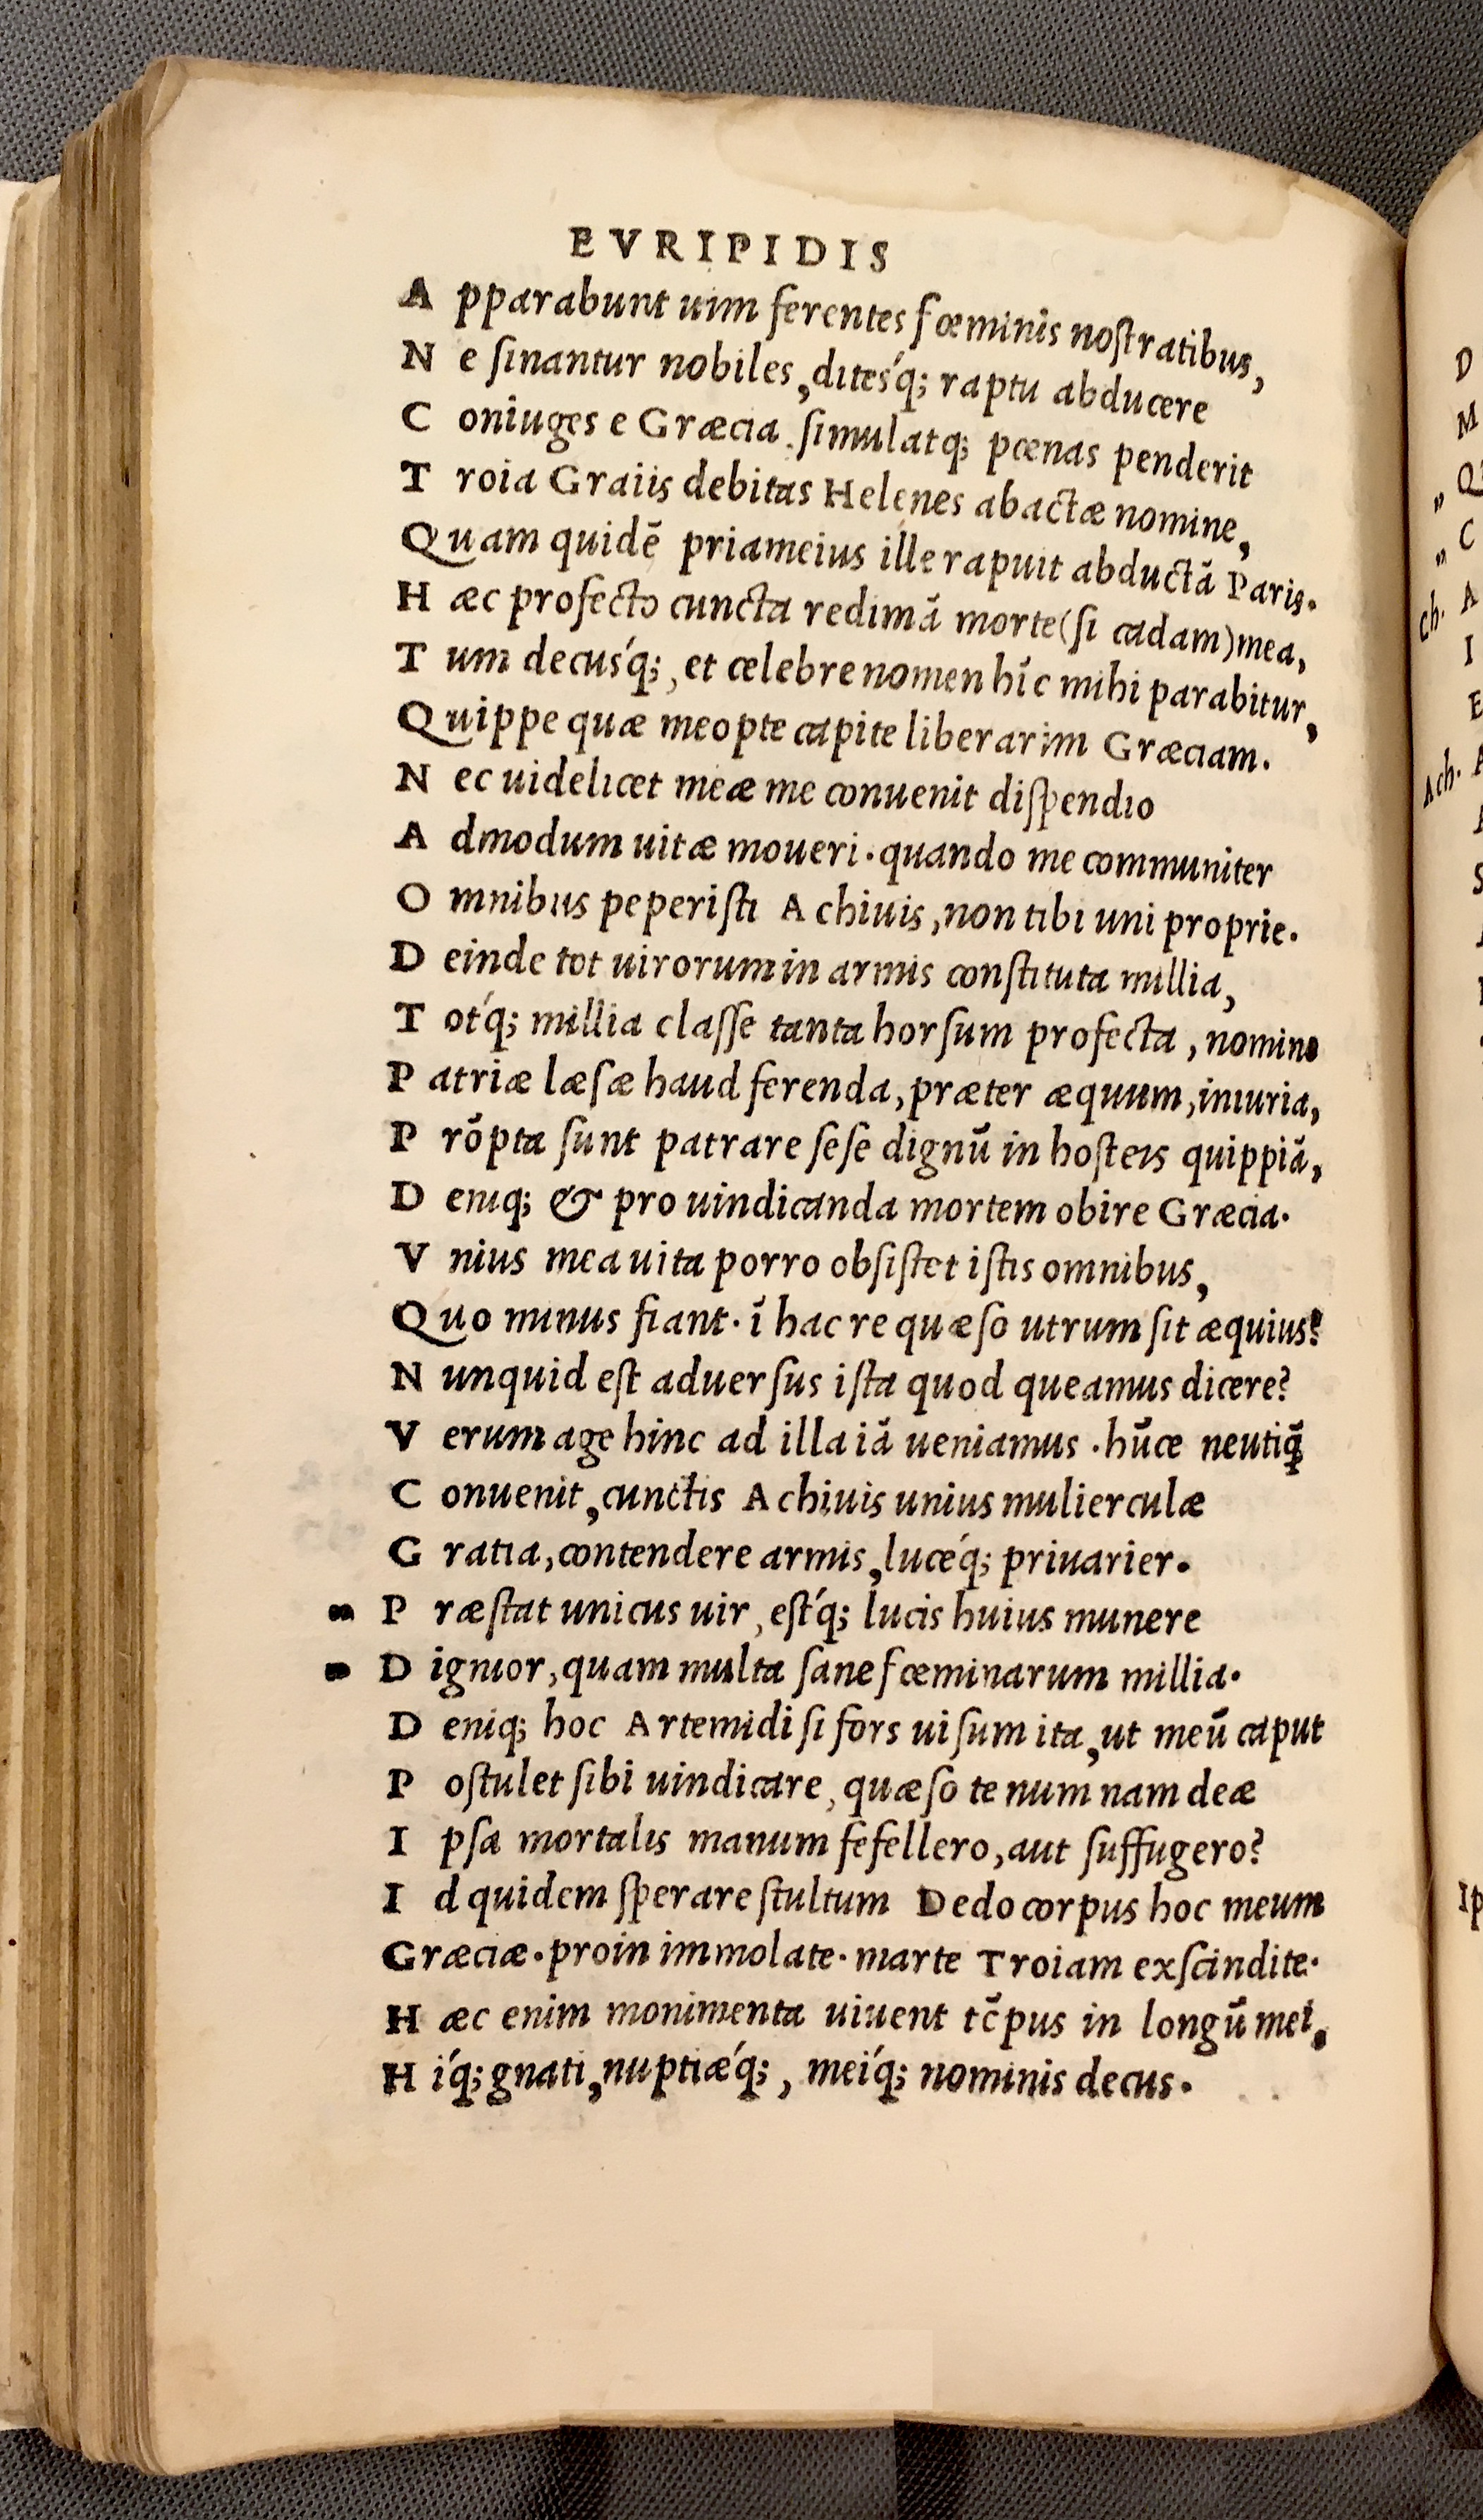 EVRIPIDIS
A pparabunt uim ferentes fœminis noſtratibus,
N e ſinantur nobiles, diteś́q; raptu abducere
C oniuges e Græcia. ſimulatq; pœnas penderit
T roia Graiis debitas Helenes abactæ nomine,
Quam quidē priameius ille rapuit abductā Paris.
H æc profecto cuncta redimā morte(ſi cadam)mea,
T um decuś́q;, et celebre nomen hīc mihi parabitur,
Quippe quæ meopte capite liberarim Græciam.
N ec uidelicet meæ me conuenit diſpendio
A dmodum uitæ moueri. quando me communiter
O mnibus peperiſti Achiuis, non tibi uni proprie.
D einde tot uirorum in armis conſtituta millia,
T ot́q; millia claſſe tanta horſum profecta, nomine
P atriæ læſæ haud ferenda, præter æquum, iniuria,
P rōpta ſunt patrare ſeſe dignū in hoſteis quippiā,
D eniq; & pro uindicanda mortem obire Græcia.
V nius mea uita porro obſiſtet iſtis omnibus,
Quo minus fiant. ī hac re quæſo utrum ſit æquius?
N unquid eſt aduerſus iſta quod queamus dicere?
V erum age hinc ad illa iā ueniamus. hūce neutiq̄
C onuenit, cunctis Achiuis unius mulierculæ
G ratia, contendere armis, lucéq; priuarier.
„ P ræſtat unicus uir, eſt́q; lucis huius munere
„ D ignior, quam multa ſane fœminarum millia.
D eniq; hoc Artemidi ſi fors uiſum ita, ut meū caput
P oſtulet ſibi uindicare, quæſo te num nam deæ
I pſa mortalis manum fefellero, aut ſuffugero?
I d quidem ſperare ſtultum Dedo corpus hoc meum
Græciæ. proin immolate. marte Troiam exſcindite.
H æc enim monimenta uiuent tēpus in longū mei,
H íq; gnati, nuptiǽq;, meíq; nominis decus.
D
M
„ Q
„ C
Ch. A
I
E
Ach. A
S
Ip